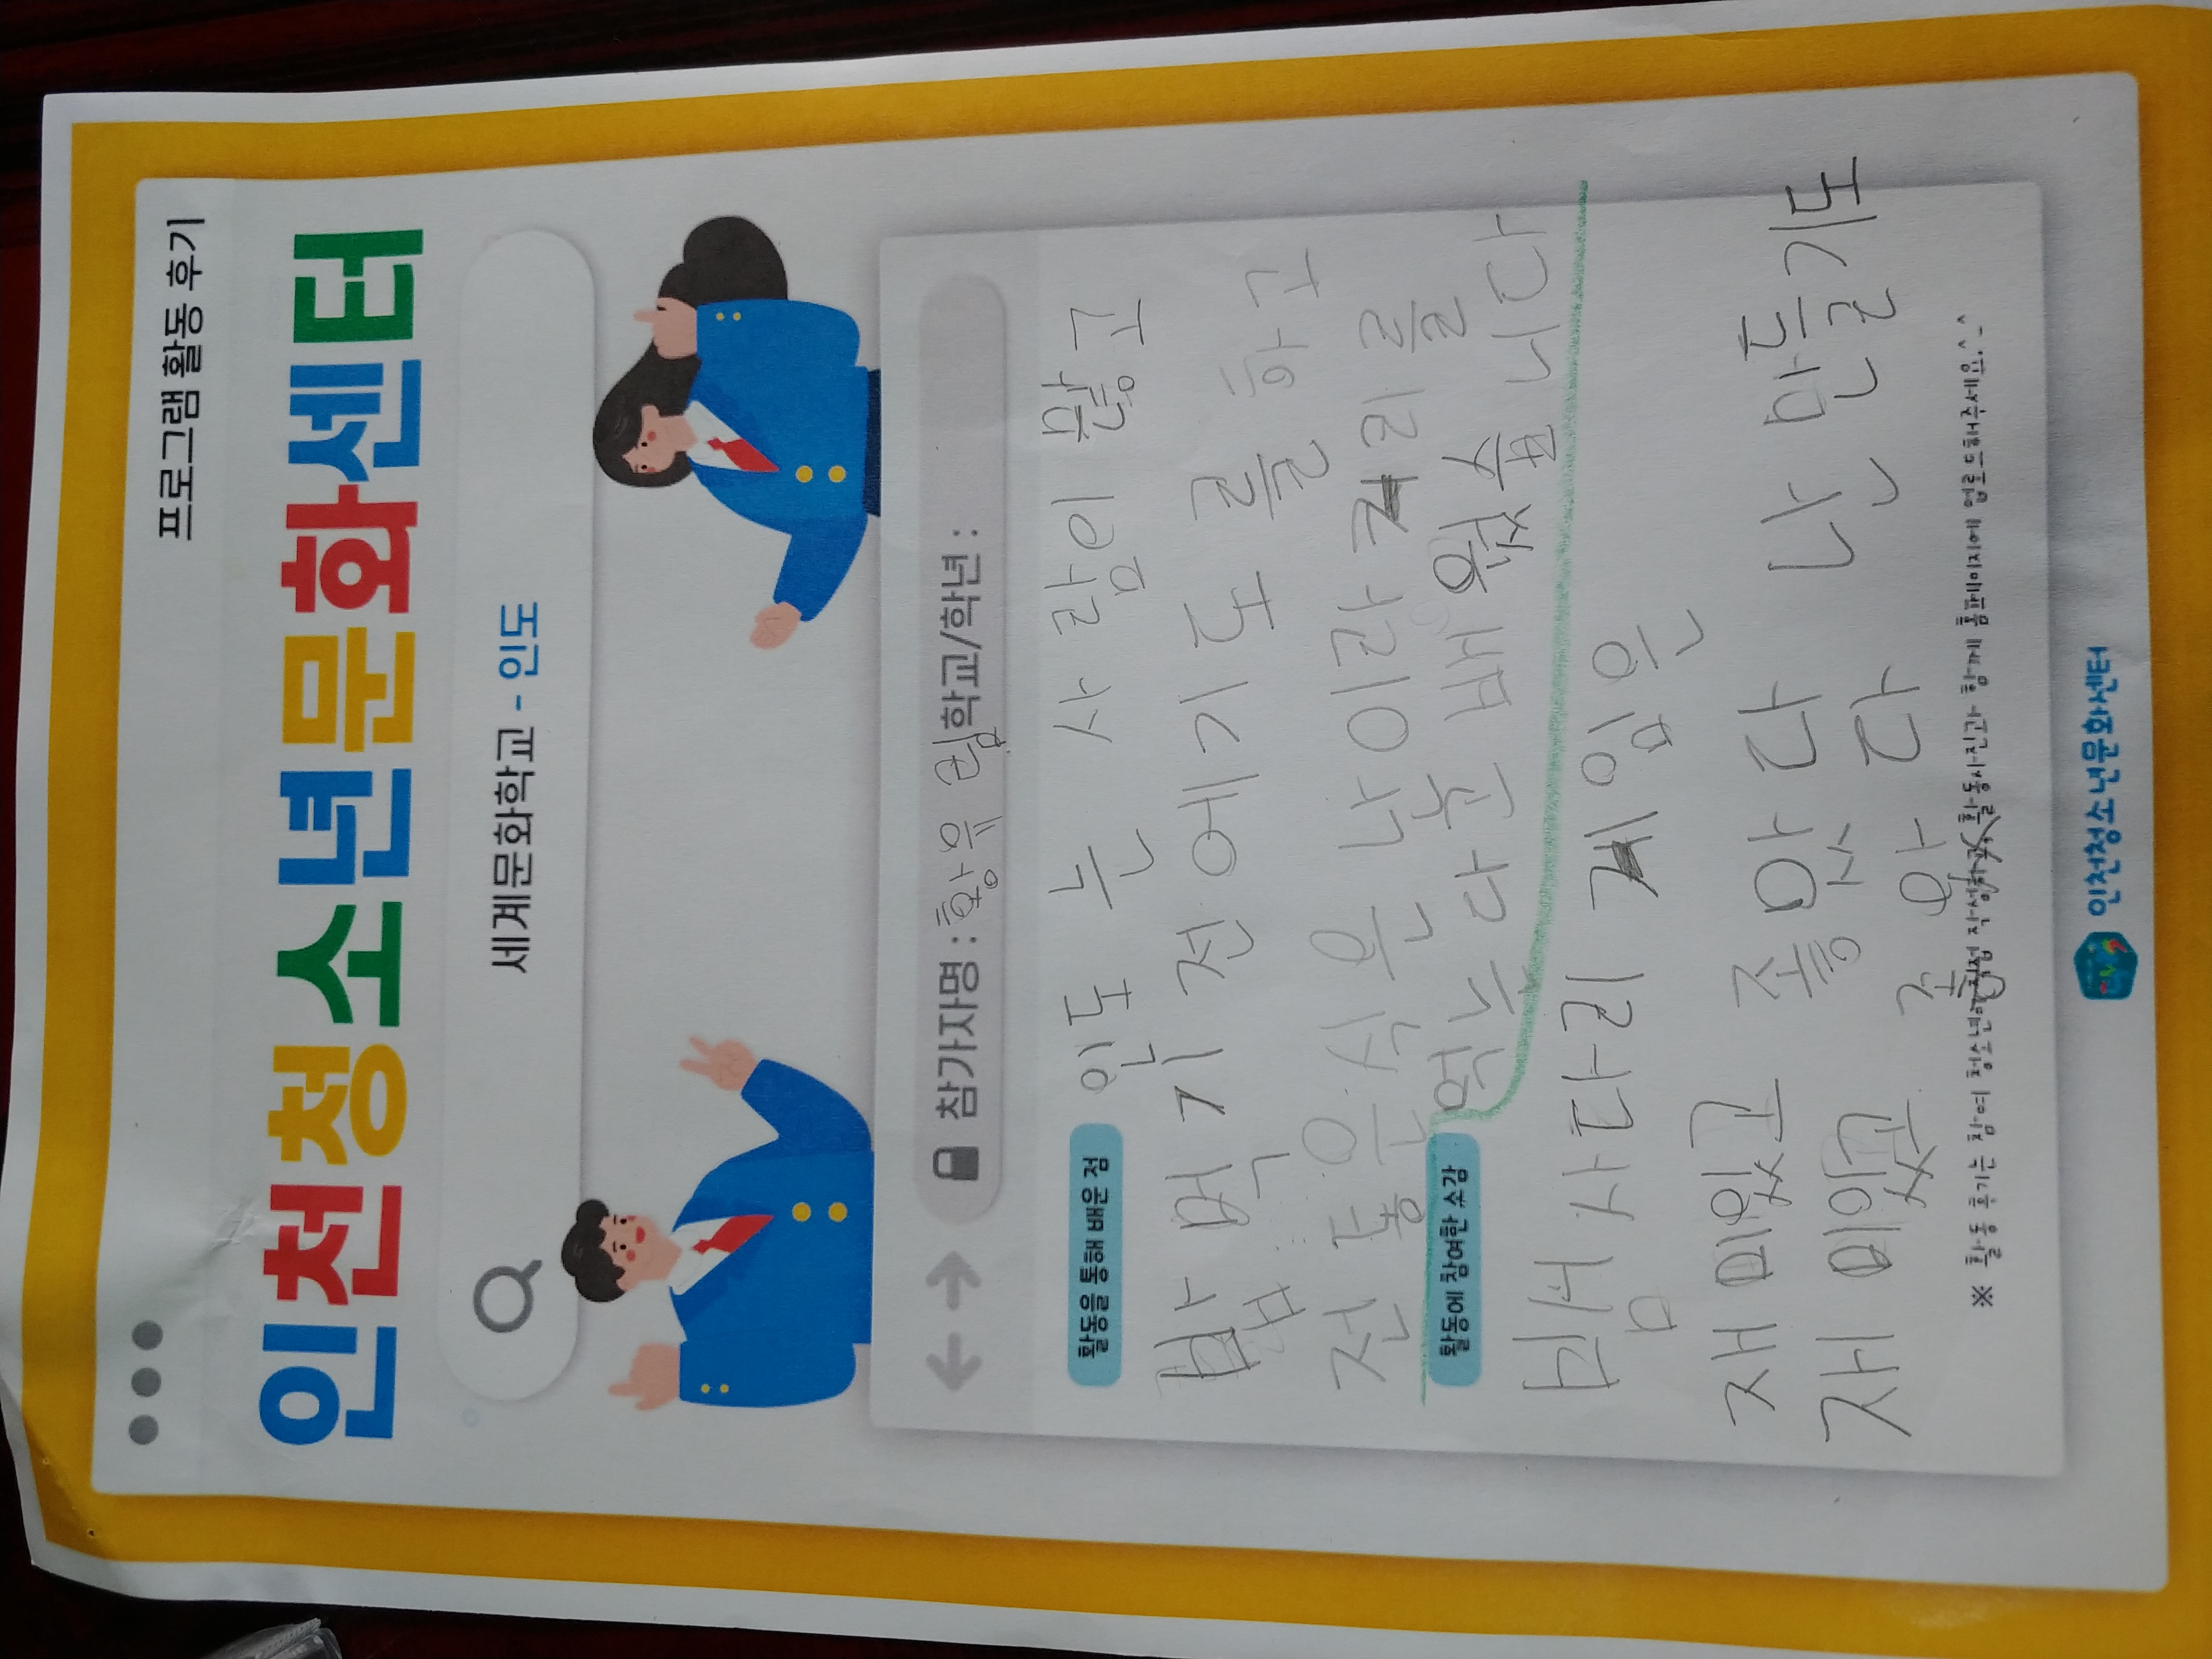 프로그램 활동 후기
인천청소년문화센터
세계문화학교 - 인도
참가자명 : 황유림 학교/학년 :
활동을 통해 배운 점
인도 는 사람이 많고
밥 먹기 전에 기도를 하고
전통 음식은 난이랑 커리를
먹는다고 배웠습니다
활동에 참여한 소감
빔 사다리 게임은
재미있고 좋았다 난 만들기도
재미있고 좋았다
※ 활동 후기는 참여 청소년이 직접 작성하고, 활동사진과 함께 홈페이지에 업로드해주세요^_^
인천청소년문화센터